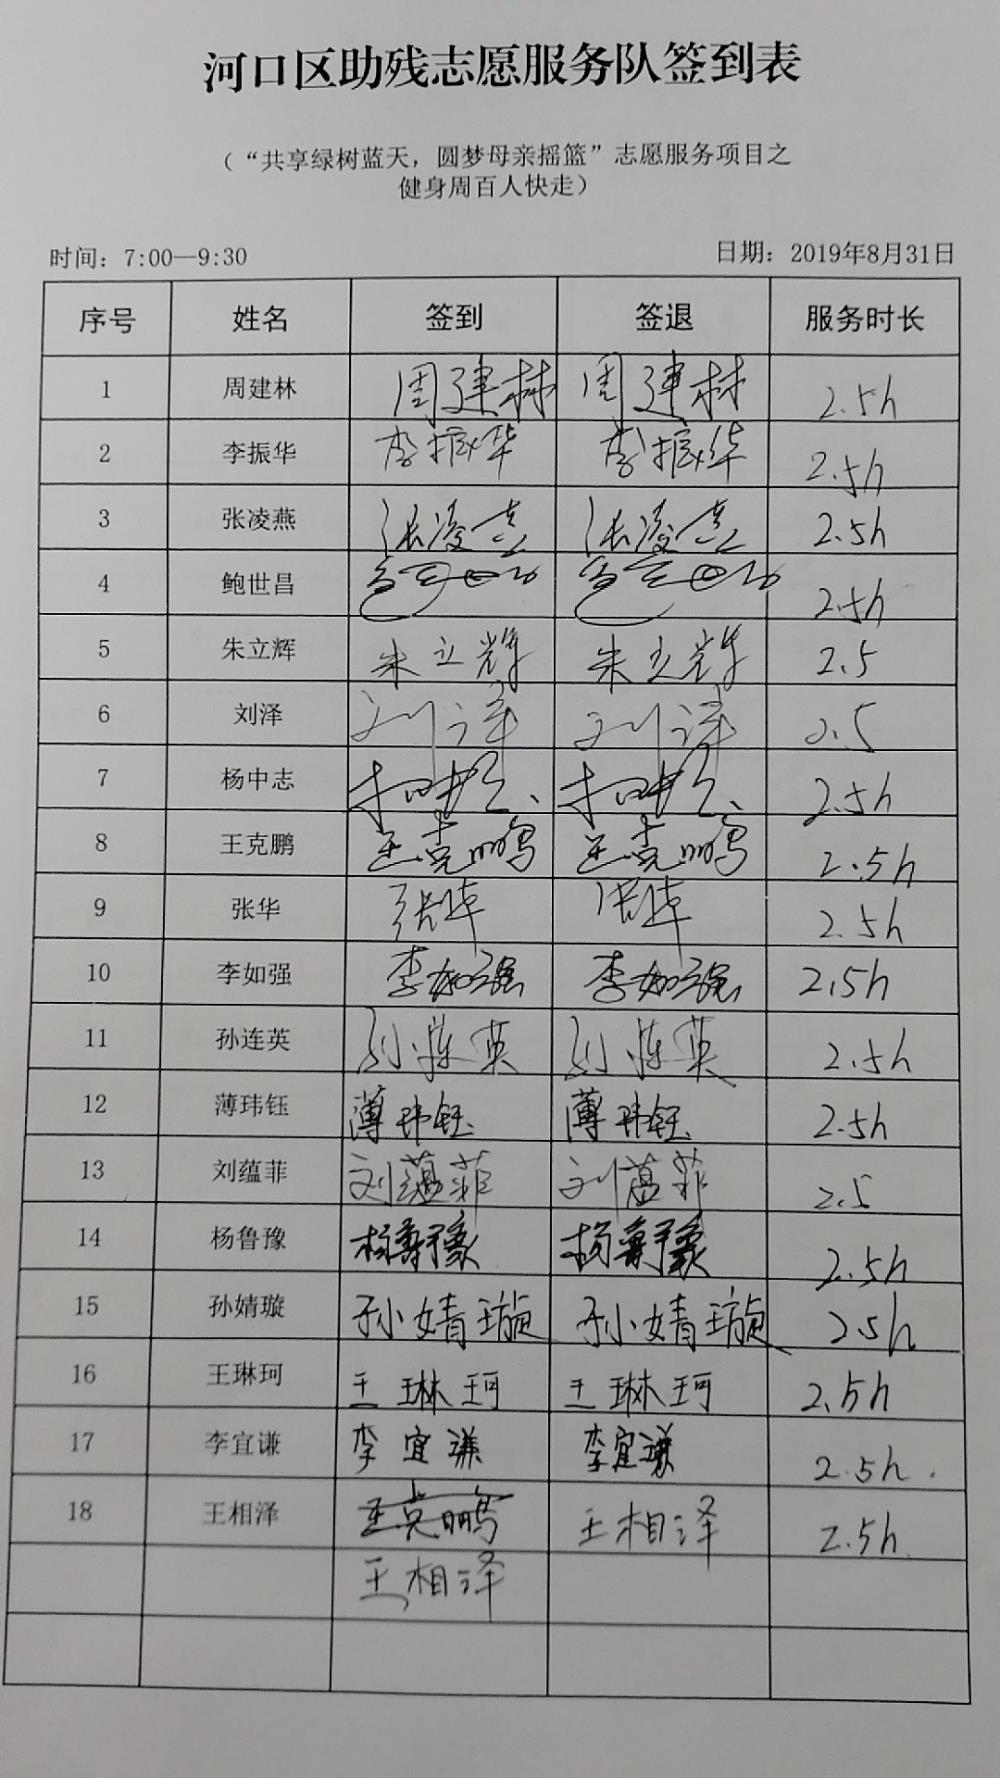 河口区助残志愿服务队签到表
（“共享绿树蓝天，圆梦母亲摇篮”志愿服务项目之
健身周百人快走）
时间：7:00—9:30 日期：2019年8月31日
序号 姓名 签到 签退 服务时长
1 周建林 周建林 周建林 2.5h
2 李振华 李振华 李振华 2.5h
3 张凌燕 张凌燕 张凌燕 2.5h
4 鲍世昌 2.5h
5 朱立辉 朱立辉 朱立辉 2.5
6 刘泽 刘泽 刘泽 2.5
7 杨中志 杨中志 杨中志 2.5h
8 王克鹏 王克鹏 王克鹏 2.5h
9 张华 张华 张华 2.5h
10 李如强 李如强 李如强 2.5h
11 孙连英 孙连英 孙连英 2.5h
12 薄玮钰 薄玮钰 薄玮钰 2.5h
13 刘蕴菲 刘蕴菲 刘蕴菲 2.5
14 杨鲁豫 杨鲁豫 杨鲁豫 2.5h
15 孙婧璇 孙婧璇 孙婧璇 2.5h
16 王琳珂 王琳珂 王琳珂 2.5h
17 李宜谦 李宜谦 李宜谦 2.5h.
18 王相泽 王克鹏 王相泽 2.5h.
王相泽